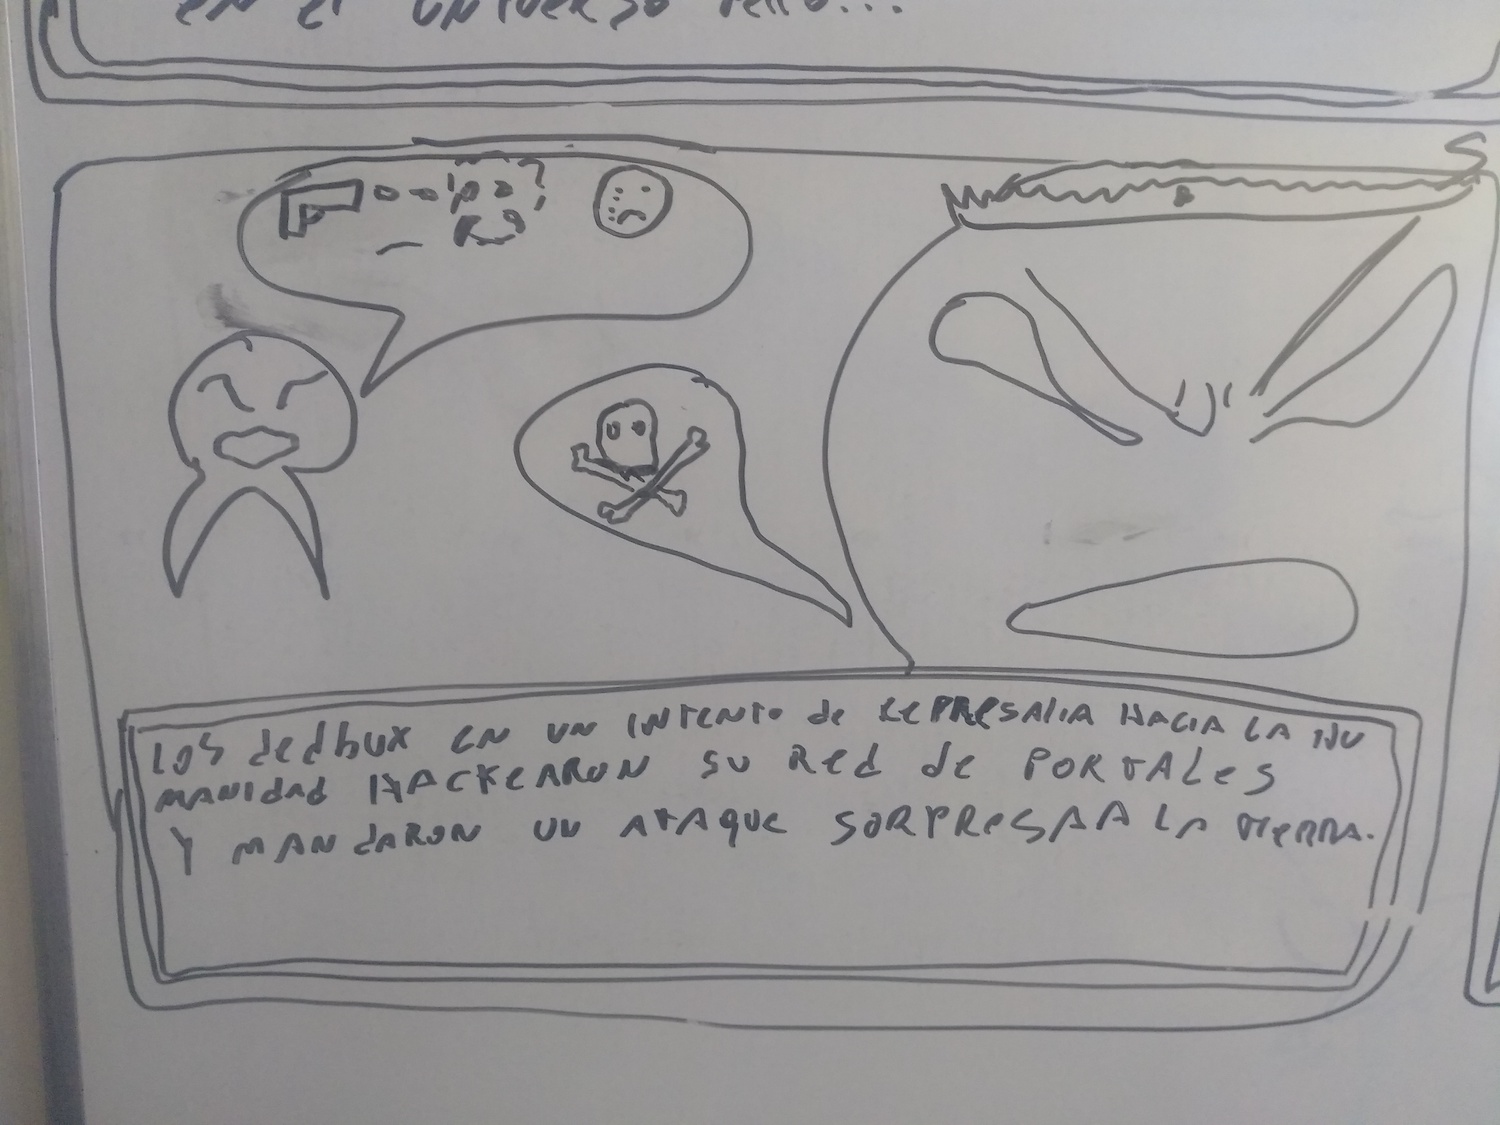 en el universo pero...
LOS dedbux EN UN INTENTO de REPRESALIA HACIA LA HU
MANIDAD HACKEARON SU Red de PORTALES
Y MANDARON UN ATAQUE SORPRESA A LA TIERRA.